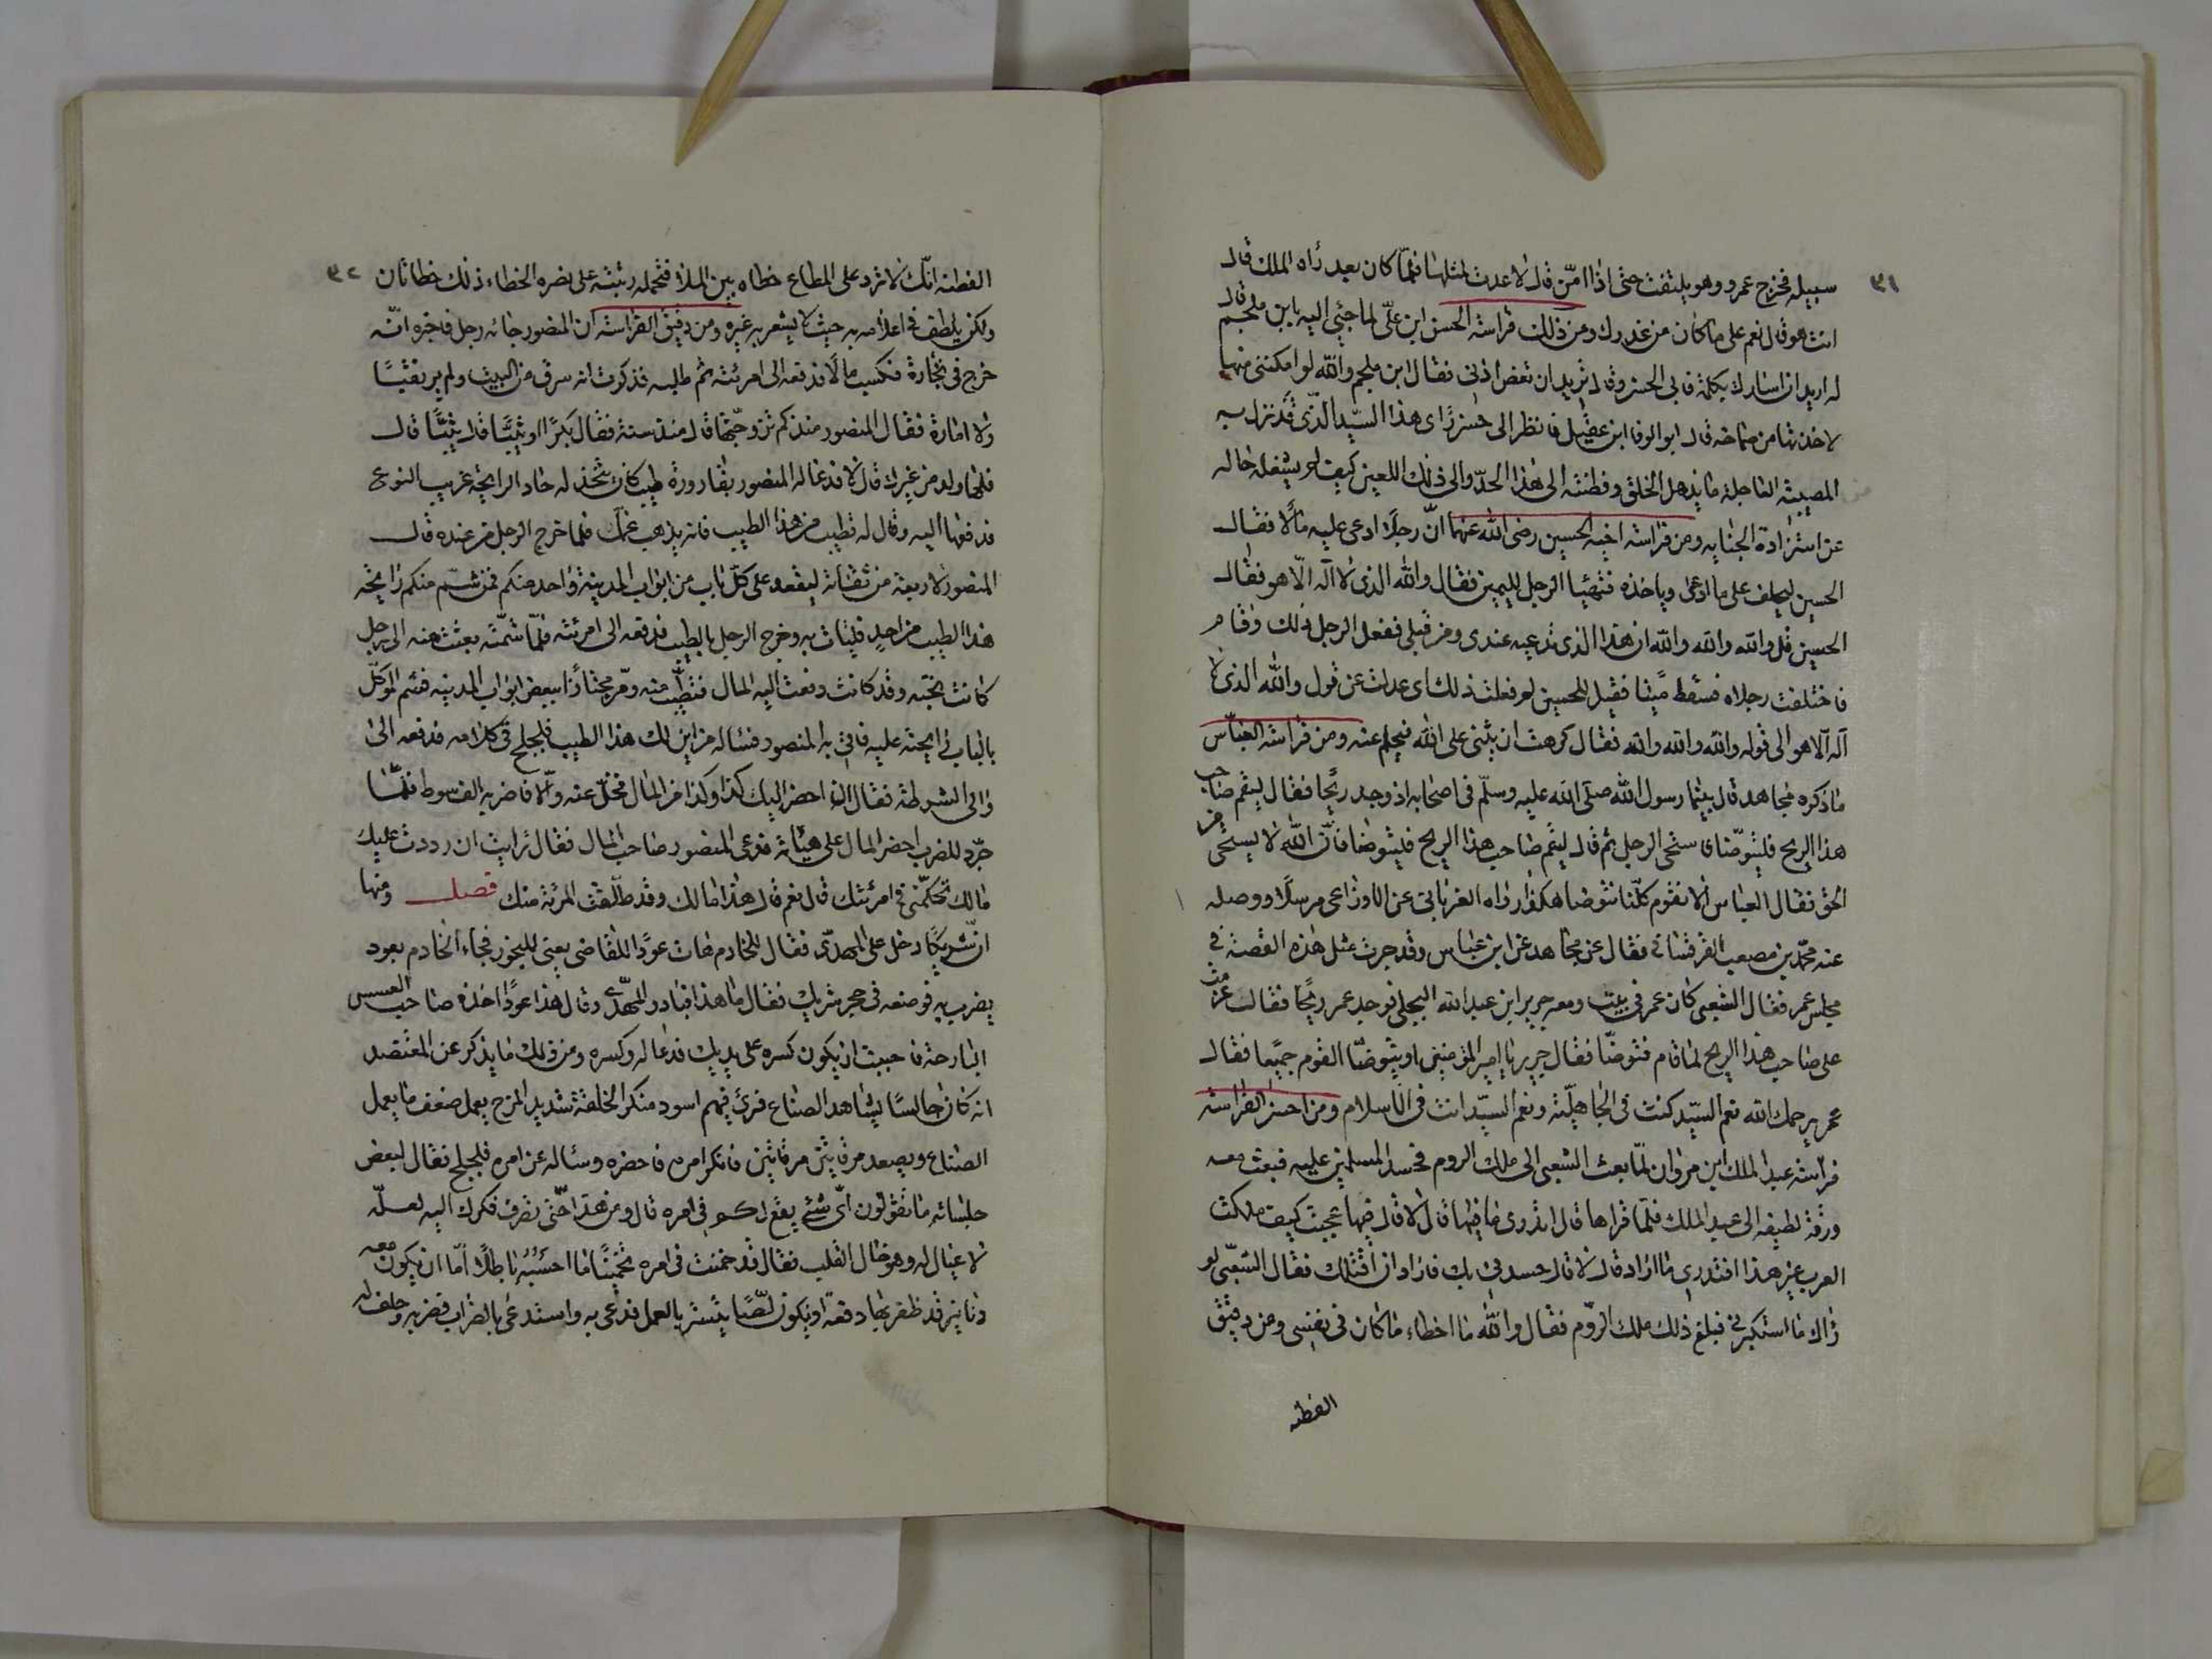 ٣١
سبيله فخرج عمرو وهو يلتفت حتى اذا امّن قال لا عدت لمثلها فلمّا كان بعد رأه الملك قال
انت هو قال نعم على ما كان من غدرك ومن ذلك فراسة الحسن ابن علىّ لما جئي اليه بابن ملجم قال
له اريد ان اسارك بكلمة فابى الحسن وقال تريد ان تعض اذنى فقال ابن ملجم والله لو امكننى منها
لاخذتها من صماخه قال ابو الوفا ابن عقيل فانظر الى حسن رأى هذا السيّد الّذى قد نزل به
المصيبة العاجلة ما يذهل الخلق وفطنته الى هذا الحدّ والى ذلك اللعين كيف لم يشغله حاله
عن استزادة الجنايه ومن فراسة اخيه الحسين رضى الله عنهما انّ رجلًا ادعى عليه مالًا فقال
الحسين ليحلف على ما ادعى وياخذه فتهيئا الرجل لليمين فقال والله الذى لا اله الّا هو فقال
الحسين قل والله والله والله ان هذا الذى تدعيه عندى ومن قبلى ففعل الرجل ذلك وقام
فاختلفت رجلاه فسقط ميّتا فقيل للحسين لم فعلت ذلك اى عدلت عن قول والله الذى لا
اله الا هو الى قوله والله والله والله فقال كرهت ان يثنى على الله فيحلم عنه ومن فراسة العبّاس
ما ذكره مجاهد قال بينما رسول الله صلّى الله عليه وسلّم فى اصحابه اذ وجد ريحًا فقال ليقم صاحب
هذا الريح فليتوضّا فاستحى الرجل ثم قال ليقم صاحب هذا الريح فليتوضا فانّ الله لا يستحى من
الحق فقال العباس الا نقوم كلّنا نتوضا هكذا رواه الفريابى عن الاوزاعى مرسلًا ووصله
عنه محمّد بن مصعب القرقسانى فقال عن مجاهد عن ابن عباس وقد جرت مثل هذه القصة فى
مجلس عمر فقال الشعبى كان عمر فى بيت ومعه جرير ابن عبد الله البجلى فوجد عمر ريحًا فقال عزمت
على صاحب هذا الريح لما قام فتوضّا فقال جرير يا امير المؤمنين او يتوضّا القوم جميعا فقال
عمر يرحمك الله نعم السيّد كنت فى الجاهليّة ونعم السيّد انت فى الاسلام ومن احسن الفراسة
فراسة عبد الملك ابن مروان لمّا بعث الشعبى الى ملك الروم فحسد المسلمين عليه فبعث معه
ورقة لطيفه الى عبد الملك فلمّا قراها قال اتدرى ما فيها قال لا قال فيها عجبت كيف ملكت
العرب غير هذا افتدرى ما اراد قال لا قال حسدنى بك فاراد ان اقتلك فقال الشعبّى لو
رٰاك ما استكبرنى فبلغ ذلك ملك الرّوم فقال والله ما اخطاء ما كان فى نفسى ومن دقيق
الفطنه
٣٢
الفطنه انّك لا ترد على المطاع خطاه بين الملأ فتحمله رتبته على نصره الخطاء ذلك خطا ثان
ولكن يلطف فى اعلامه به حيث لا يشعر به غيره ومن دقيق الفراسة ان المنصور جائه رجل فاخبره انّه
خرج فى تجارة فكسب مالًا فدفعه الى امرئته ثم طلبه فذكرت انه سرق من البيت ولم ير نقبًا
ولا امارة فقال المنصور منذ كم تزوجّتها قال منذ سنة فقال بكرًا او ثيبًّا قال ثيبًّا قال
فلها ولد من غيرك قال لا فدعا له المنصور بقارورة طيب كان يتخذ له حاد الرايحة غريب النوع
فدفعها اليه وقال له تطيب من هذا الطيب فانه يذهب غمك فلما خرج الرجل من عنده قال
المنصور لاربعة من ثقاته ليقعد على كلّ باب من ابواب المدينة واحد منكم فمن شمّ منكم رايحة
هذا الطيب من احدٍ فليات به وخرج الرجل بالطيب فدفعه الى امرئته فلمّا شمّته بعثت منه الى رجل
كانت تحبّه وقد كانت دفعت اليه المال فتطيّب منه ومرّ مجتازًا ببعض ابواب المدينه فشم الموكّل
بالباب رايحته عليه فاتى به المنصور فساله من اين لك هذا الطيب فلجلج فى كلامه فدفعه الى
والى الشرطة فقال ان احضر اليك كذا وكذا من المال فخلّ عنه والّا فاضربه الف سوط فلمّا
جرّد للضرب احضر المال على هيئاته فدعى المنصور صاحب المال فقال ارايت ان رددت عليك
مالك تحكّمنى فى امرئتك قال نعم قال هذا مالك وقد طلّقت المرئة منك فصل ومنها
ان شريكًا دخل على المهدّى فقال للخادم هات عودًا للقاضى يعنى للبخور فجاء الخادم بعود
يضرب به فوضعه فى حجر شريك فقال ما هذا فبادر المهدّى وقال هذا عودًا اخذه صاحب العسس
البارحة فاحببت ان يكون كسره على يديك فدعا له وكسره ومن ذلك ما يذكر عن المعتضد
انه كان جالسًا يشاهد الصناع فرئ فيهم اسود منكر الخلقة شديد المزح يعمل ضعف ما يعمل
الصناع ويصعد مرقاتين مرقاتين فانكر امره فاحضره وساله عن امره فلجلج فقال لبعض
جلسائه ما تقولون اىّ شئ يقع لكم فى امره قال ومن هذا حتى تصرف فكرك اليه لعلّه
لا عيال له وهو خال القلب فقال قد خمنت فى امره تخمينًا ما احسبُه باطلًا امّا ان يكون معه
دنانير قد ظفر بها دفعة او يكون لصًّا يتستر بالعمل فدعى به واستدعى بالضراب فضربه وحلف له